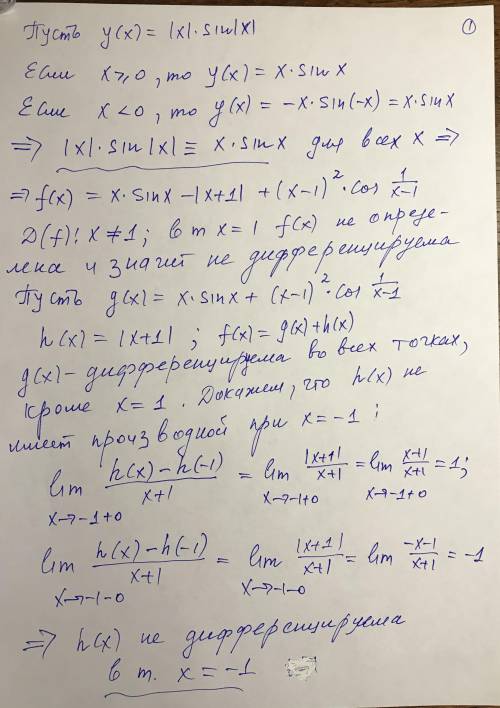 ①
Пусть y(x) = |x|·sin|x|
Если x ⩾ 0, то y(x) = x·sin x
Если x < 0, то y(x) = -x·sin(-x) = x·sin x
=> |x|·sin|x| ≡ x·sin x для всех x =>
=> f(x) = x·sin x - |x+1| + (x-1)²·cos 1/(x-1)
D(f): x ≠ 1; в т x = 1 f(x) не опреде-
лена и значит не дифференцируема
Пусть g(x) = x·sin x + (x-1)²·cos 1/(x-1)
h(x) = |x+1| ; f(x) = g(x)+h(x)
g(x) - дифференцируема во всех точках,
кроме x = 1. Докажем, что h(x) не
имеет производной при x = -1 ;
lim x→-1+0 (h(x) - h(-1))/(x+1) = lim x→-1+0 |x+1|/(x+1) = lim x→-1+0 (x+1)/(x+1) = 1;
lim x→-1-0 (h(x) - h(-1))/(x+1) = lim x→-1-0 |x+1|/(x+1) = lim (-x-1)/(x+1) = -1
=> h(x) не дифференцируема
в т. x = -1